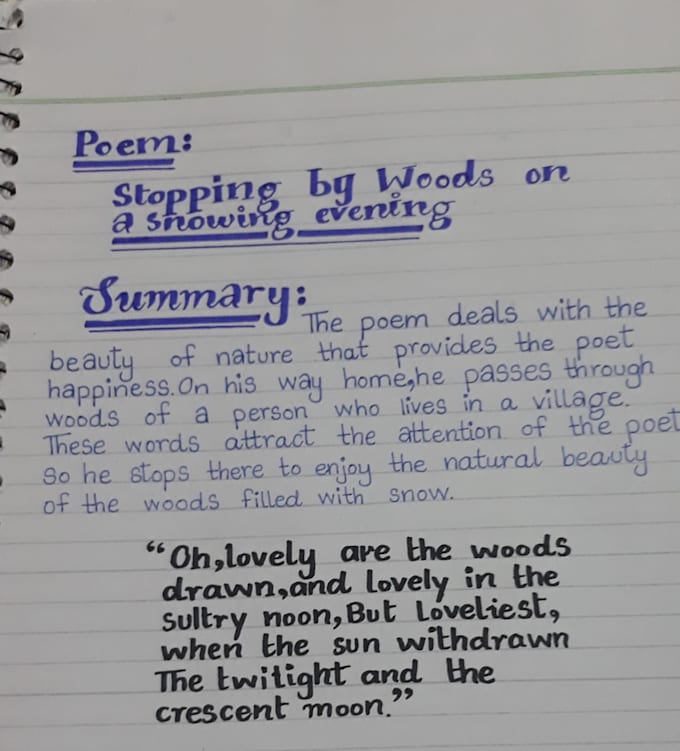 Poem:
Stopping by Woods on
a snowing evening
Summary:
The poem deals with the
beauty of nature that provides the poet
happiness.On his way home,he passes through
woods of a person who lives in a village.
These words attract the attention of the poet
So he stops there to enjoy the natural beauty
of the woods filled with snow.
“Oh,lovely are the woods
drawn,and lovely in the
sultry noon,But Loveliest,
when the sun withdrawn
The twilight and the
crescent moon.”